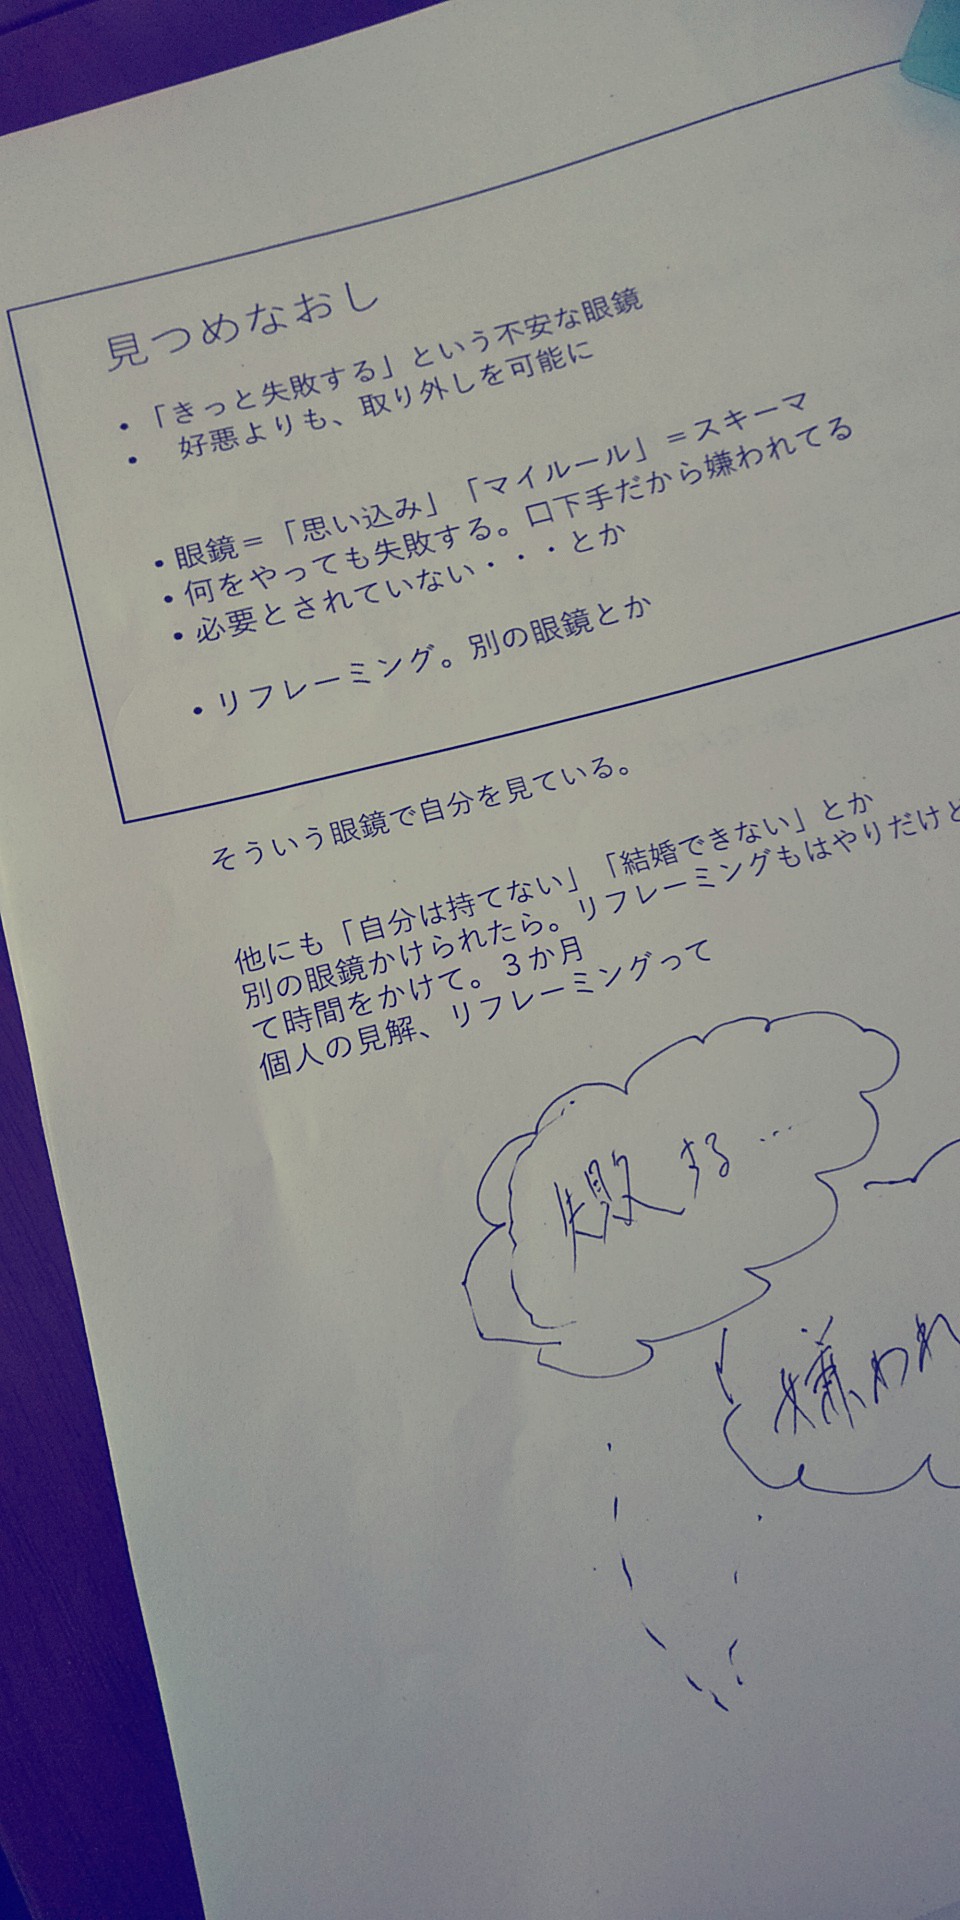 見つめなおし
・「きっと失敗する」という不安な眼鏡
・ 好悪よりも、取り外しを可能に
・眼鏡＝「思い込み」「マイルール」＝スキーマ
・何をやっても失敗する。口下手だから嫌われてる
・必要とされていない・・・とか
・リフレーミング。別の眼鏡とか
そういう眼鏡で自分を見ている。
他にも「自分は持てない」「結婚できない」とか
別の眼鏡かけられたら。リフレーミングもはやりだけど
て時間をかけて。３か月
個人の見解、リフレーミングって
失敗する…
嫌われ